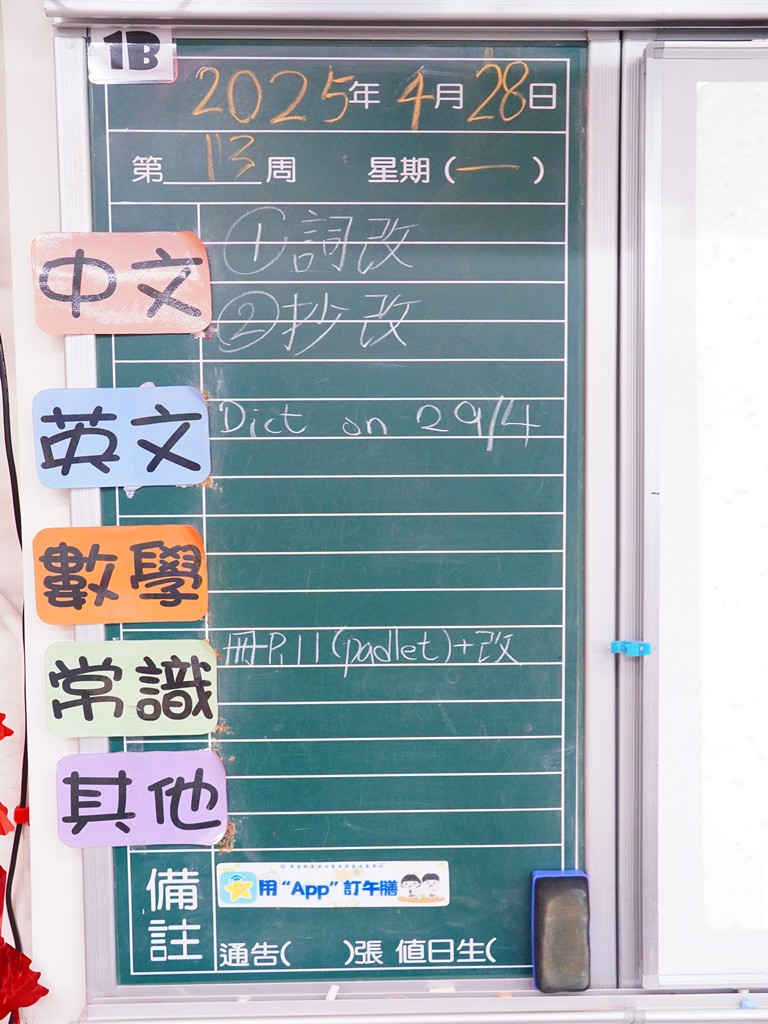 1B
2025年 4月 28日
第 13 周 星期 (一)
中文
①詞改
②抄改
英文
Dict on 29/4
數學
常識
冊P.11 (padlet) + 改
其他
備註
用 “App” 訂午膳
通告( )張 值日生(